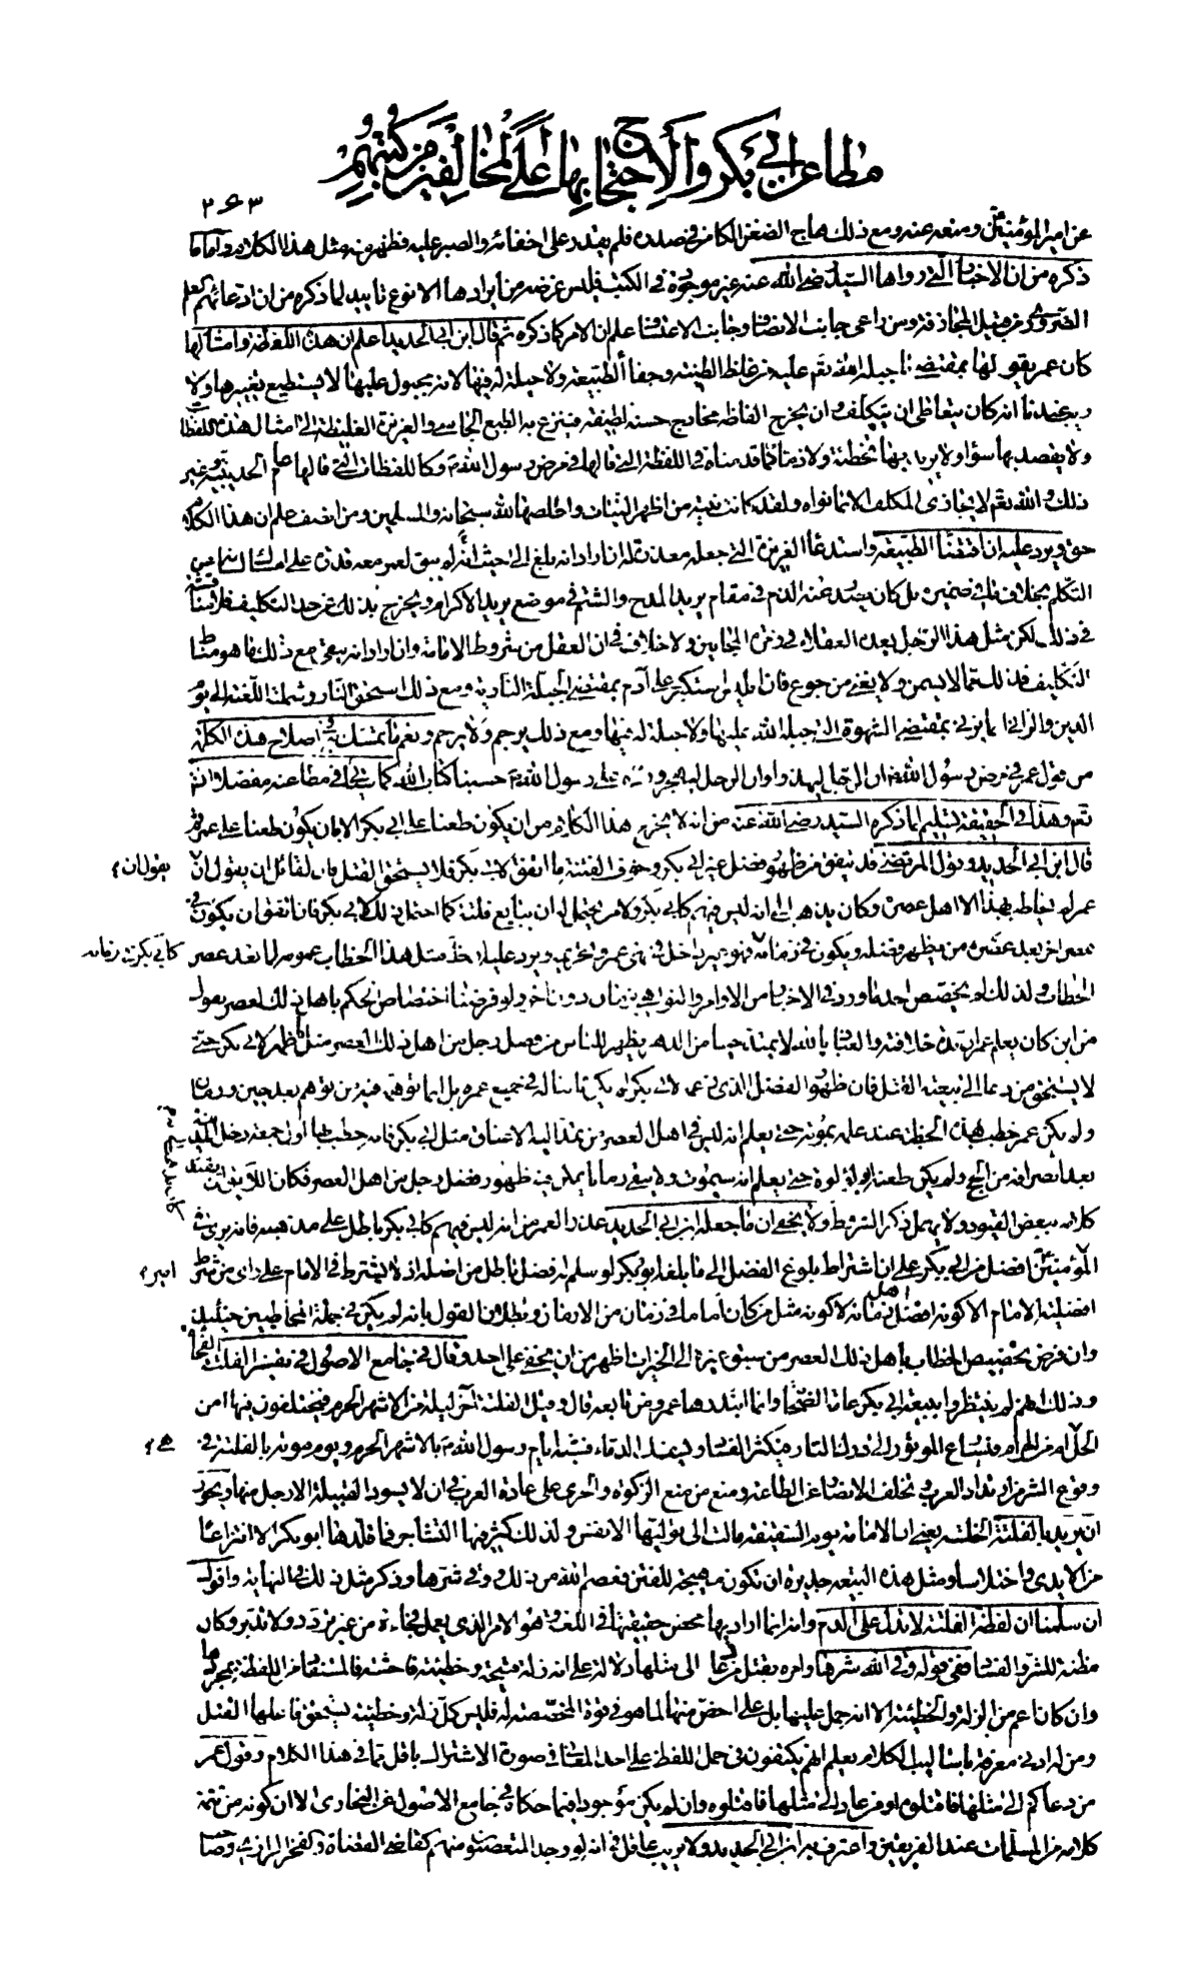 مطاعن أبي بكر والاحتجاج بها على المخالفين من كتبهم
٢٦٣
عن أمير المؤمنين ومنعه عنه ومع ذلك هاج الضغن الكامن في صدره فلم يقدر على اخفائه والصبر عليه فظهر منه مثل هذا الكلام وأما ما
ذكره من ان الاخبار التي رواها السيد رضي الله عنه غير موجودة في الكتب فليس غرضه من ايرادها الا نوع تأييد لما ذكره من ان ادعائهم العلم
الضروري من قبيل المجازفة ومن راعى جانب الانصاف وجانب الاعتساف علم ان الامر كما ذكره ثم قال ابن ابي الحديد اعلم ان هذه اللفظة وامثالها
كان عمر يقولها بمقتضى ما جبله الله تعالى عليه من غلظ الطينة وجفاء الطبيعة ولا حيلة له فيها لانه مجبول عليها لا يستطيع تغييرها ولا
ريب عندنا انه كان يتعاطى ان يتكلف وان يخرج الفاظه مخارج حسنة لطيفة فينزع به الطبع الجاسي والغريزة الغليظة الى امثال هذه اللفظات
ولا يقصد بها سوءا ولا يريد بها تخطئة ولا ذما كما قدمناه في اللفظة التي قالها في مرض رسول الله ص وكاللفظات التي قالها عام الحديبية وغير
ذلك والله تعالى لا يجازي المكلف الا بما نواه ولقد كانت نيته من اطهر النيات واخلصها لله سبحانه وللمسلمين ومن انصف علم ان هذا الكلام
حق ويرد عليه ان اقتضاء الطبيعة واستدعاء الغريزة التي جعله معذرة له ان اراد انه بلغ الى حيث لم يبق لعمر معه قدرة على امساك لسانه عن
التكلم بخلاف ما في ضميره بل كان يصدر عنه الذم في مقام يريد المدح والشتم في موضع يريد الاكرام ويخرج بذلك عن حد التكليف فلا مناقشة
في ذلك لكن مثل هذا الرجل يعده العقلاء في زمرة المجانين ولا خلاف في ان العقل من شروط الامامة وان اراد انه يبقى مع ذلك ما هو مناط
التكليف فذلك مما لا يسمن ولا يغني من جوع فان ابليس استكبر على آدم بمقتضى الجبلة النارية ومع ذلك استحق النار وشملته اللعنة الى يوم
الدين والزاني انما يزني بمقتضى الشهوة التي جبله الله عليها ولا حيلة له فيها ومع ذلك يرجم ولا يرحم ونعم ما تمسك به في اصلاح هذه الكلمة
من قول عمر في مرض رسول الله ص ان الرجل ليهذو او ان الرجل ليهجر ورده على رسول الله ص حسبنا كتاب الله كما سيأتي في مطاعنه مفصلا
نعم وهذا في الحقيقة تسليم لما ذكره السيد رضي الله عنه من انه لا يخرج هذا الكلام من ان يكون طعنا على ابي بكر الا بان يكون طعنا على عمر ثم
قال ابن ابي الحديد وقول المرتضى قد يتفق من ظهور فضل غير ابي بكر وخوف الفتنة ما اتفق لابي بكر فلا يستحق القتل فان لقائل ان يقول ان
يقول ان
عمر لم يخاطب بهذا الا اهل عصره وكان يذهب الى انه ليس فيهم كابي بكر ولا من يحتمل له ان يبايع فلتة كما احتمل ذلك لابي بكر فان اتفق ان يكون في
عصر اخر بعد عصره من يظهر فضله ويكون في زمانه فهو غير داخل في نهي عمر وتحريمه ويرد عليه ان مثل هذا الخطاب عمومه لما بعد عصر
كابي بكر في زمانه
الخطاب ولذلك لم يخصص احد ما ورد في الاخبار من الاوامر والنواهي بزمان دون آخر ولو فرضنا اختصاص الحكم باهل ذلك العصر نقول
من اين كان يعلم عمر ان مدة خلافته والعياذ بالله لا يمتد حينا من الدهر يظهر للناس من فضل رجل من اهل ذلك العصر مثل ما ظهر لابي بكر حتى
لا يستحق من دعا الى بيعته القتل فان ظهور الفضل الذي زعمه لابي بكر لم يكن ثابتا له في جميع عمره بل انما توهمه فيه من توهم بعد حين وزمان
ولم يكن عمر خطب بهذه الخطبة عند علمه بموته حتى يعلم انه ليس في اهل العصر من تمتد اليه الاعناق مثل ابي بكر فانه خطب بها اول جمعة دخل المدينة
بعد انصرافه من الحج ولم يكن طعنه ابو لؤلؤة حتى يعلم انه سيموت ولا يبقى زمانا يمكن فيه ظهور فضل رجل من اهل العصر فكان اللايق ان يقيد
كلامه ببعض القيود ولا يهمل ذكر الشروط ولا يخفى ان ما جعله ابن ابي الحديد عذرا لعمر من انه ليس فيهم كابي بكر باطل على مذهبه فانه يرى
امير
المؤمنين افضل من ابي بكر على ان اشتراط بلوغ الفضل الى ما بلغه ابو بكر لو سلم له فضل باطل من اصله اذ لا يشترط في الامام على رأي من شرط
افضلية الامام الا كونه افضل اهل زمانه لا كونه مثل من كان اماما في زمان من الازمان وبطلان القول بانه لم يكن في جملة المخاطبين حينئذ
وان فرض تخصيص الخطاب باهل ذلك العصر من سبق غيره الى الخيرات اظهر من ان يخفى على احد وقال في جامع الاصول في تفسير الفلتة الفجأة
وذلك انهم لم ينتظروا ببيعة ابي بكر عامة الصحابة وانما ابتدرها عمر ومن تابعه قال وقيل الفلتة آخر ليلة من الاشهر الحرم فيختلفون فيها امن
الحل ام من الحرم فيسارع الموتور الى درك الثار فيكثر الفساد ويسفك الدماء فشبه ايام رسول الله ص بالاشهر الحرم ويوم موته بالفلتة في
وقوع الشر من ارتداد العرب وتخلف الانصار عن الطاعة ومنع من منع الزكوة والجري على عادة العرب في ان لا يسود القبيلة الا رجل منها ويجوز
ان يريد بالفلتة الخلسة يعني ان الامامة يوم السقيفة مالت الى توليها الانفس ولذلك كثر فيها التشاجر فما قلدها ابو بكر الا انتزاعا
من الايدي واختلاسا ومثل هذه البيعة جديرة ان تكون مهيجة للفتن فعصم الله من ذلك ووقى شرها وذكر مثل ذلك في النهاية واقول
ان سلمنا ان لفظة الفلتة لا تدل على الذم وانه انما اراد بها محض حقيقتها في اللغة وهو الامر الذي يعمل فجاءة من غير تردد ولا تدبر وكان
مظنة للشر والفساد ففي قوله وقى الله شرها وامره بقتل من دعا الى مثلها دلالة على انه زلة قبيحة وخطيئة فاحشة فالمستفاد من اللفظة بمجردها
وان كان اعم من الزلة والخطيئة الا انه حمل عليها بل على اخص منها لما هو في قوة المخصصة له فليس كل زلة وخطيئة يستحق فاعلها القتل
ومن له ادنى معرفة باساليب الكلام يعلم انهم يكتفون في حمل اللفظ على احد المعاني في صورة الاشتراك باقل مما في هذا الكلام وقول عمر
من دعاكم الى مثلها فاقتلوه او من عاد الى مثلها فاقتلوه وان لم يكن موجودا فيما حكاه في جامع الاصول عن البخاري الا ان كونه من تتمة
كلامه من المسلمات عند الفريقين واعترف به ابن ابي الحديد ولا يريب عاقل في انه لو وجد المتعصبون منهم كقاضي القضاة والفخر الرازي وصاحب